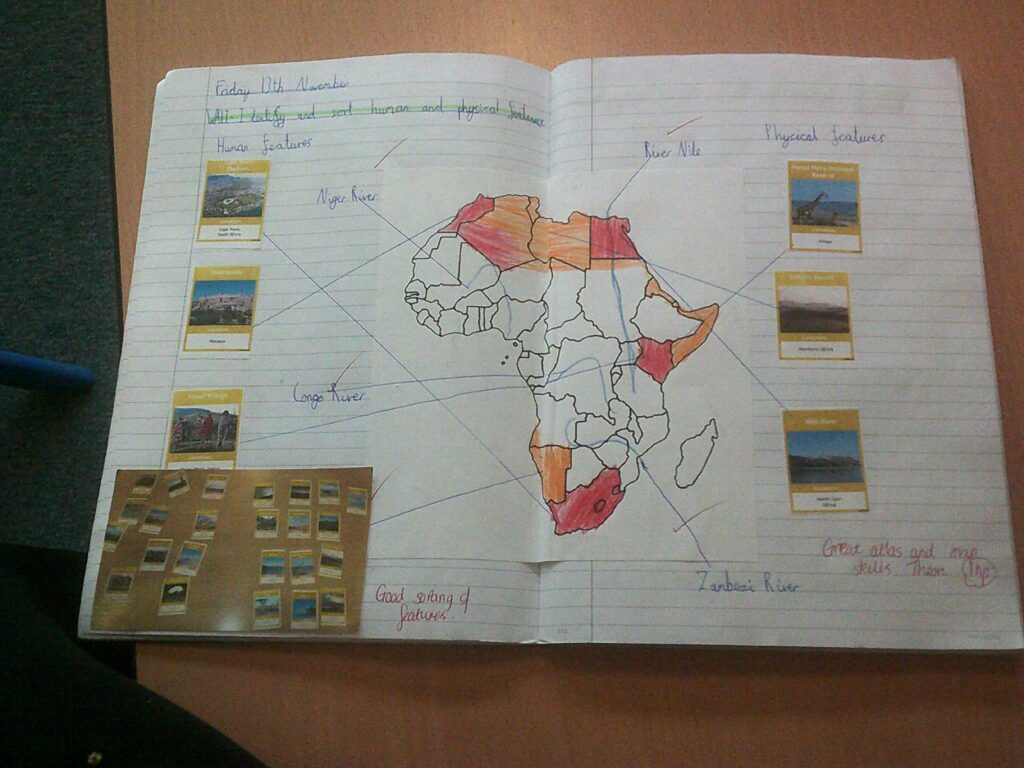 Friday 13th November
WALT: Identify and sort human and physical features
Human features
Physical features
River Nile
Niger River
Congo River
Zambezi River
Location
Cape Town,
South Africa
Location
Morocco
Tribal Village
Location
Kenya
Northern Africa
Nile River
North East
Africa
Good sorting of
features.
Great atlas and map
skills